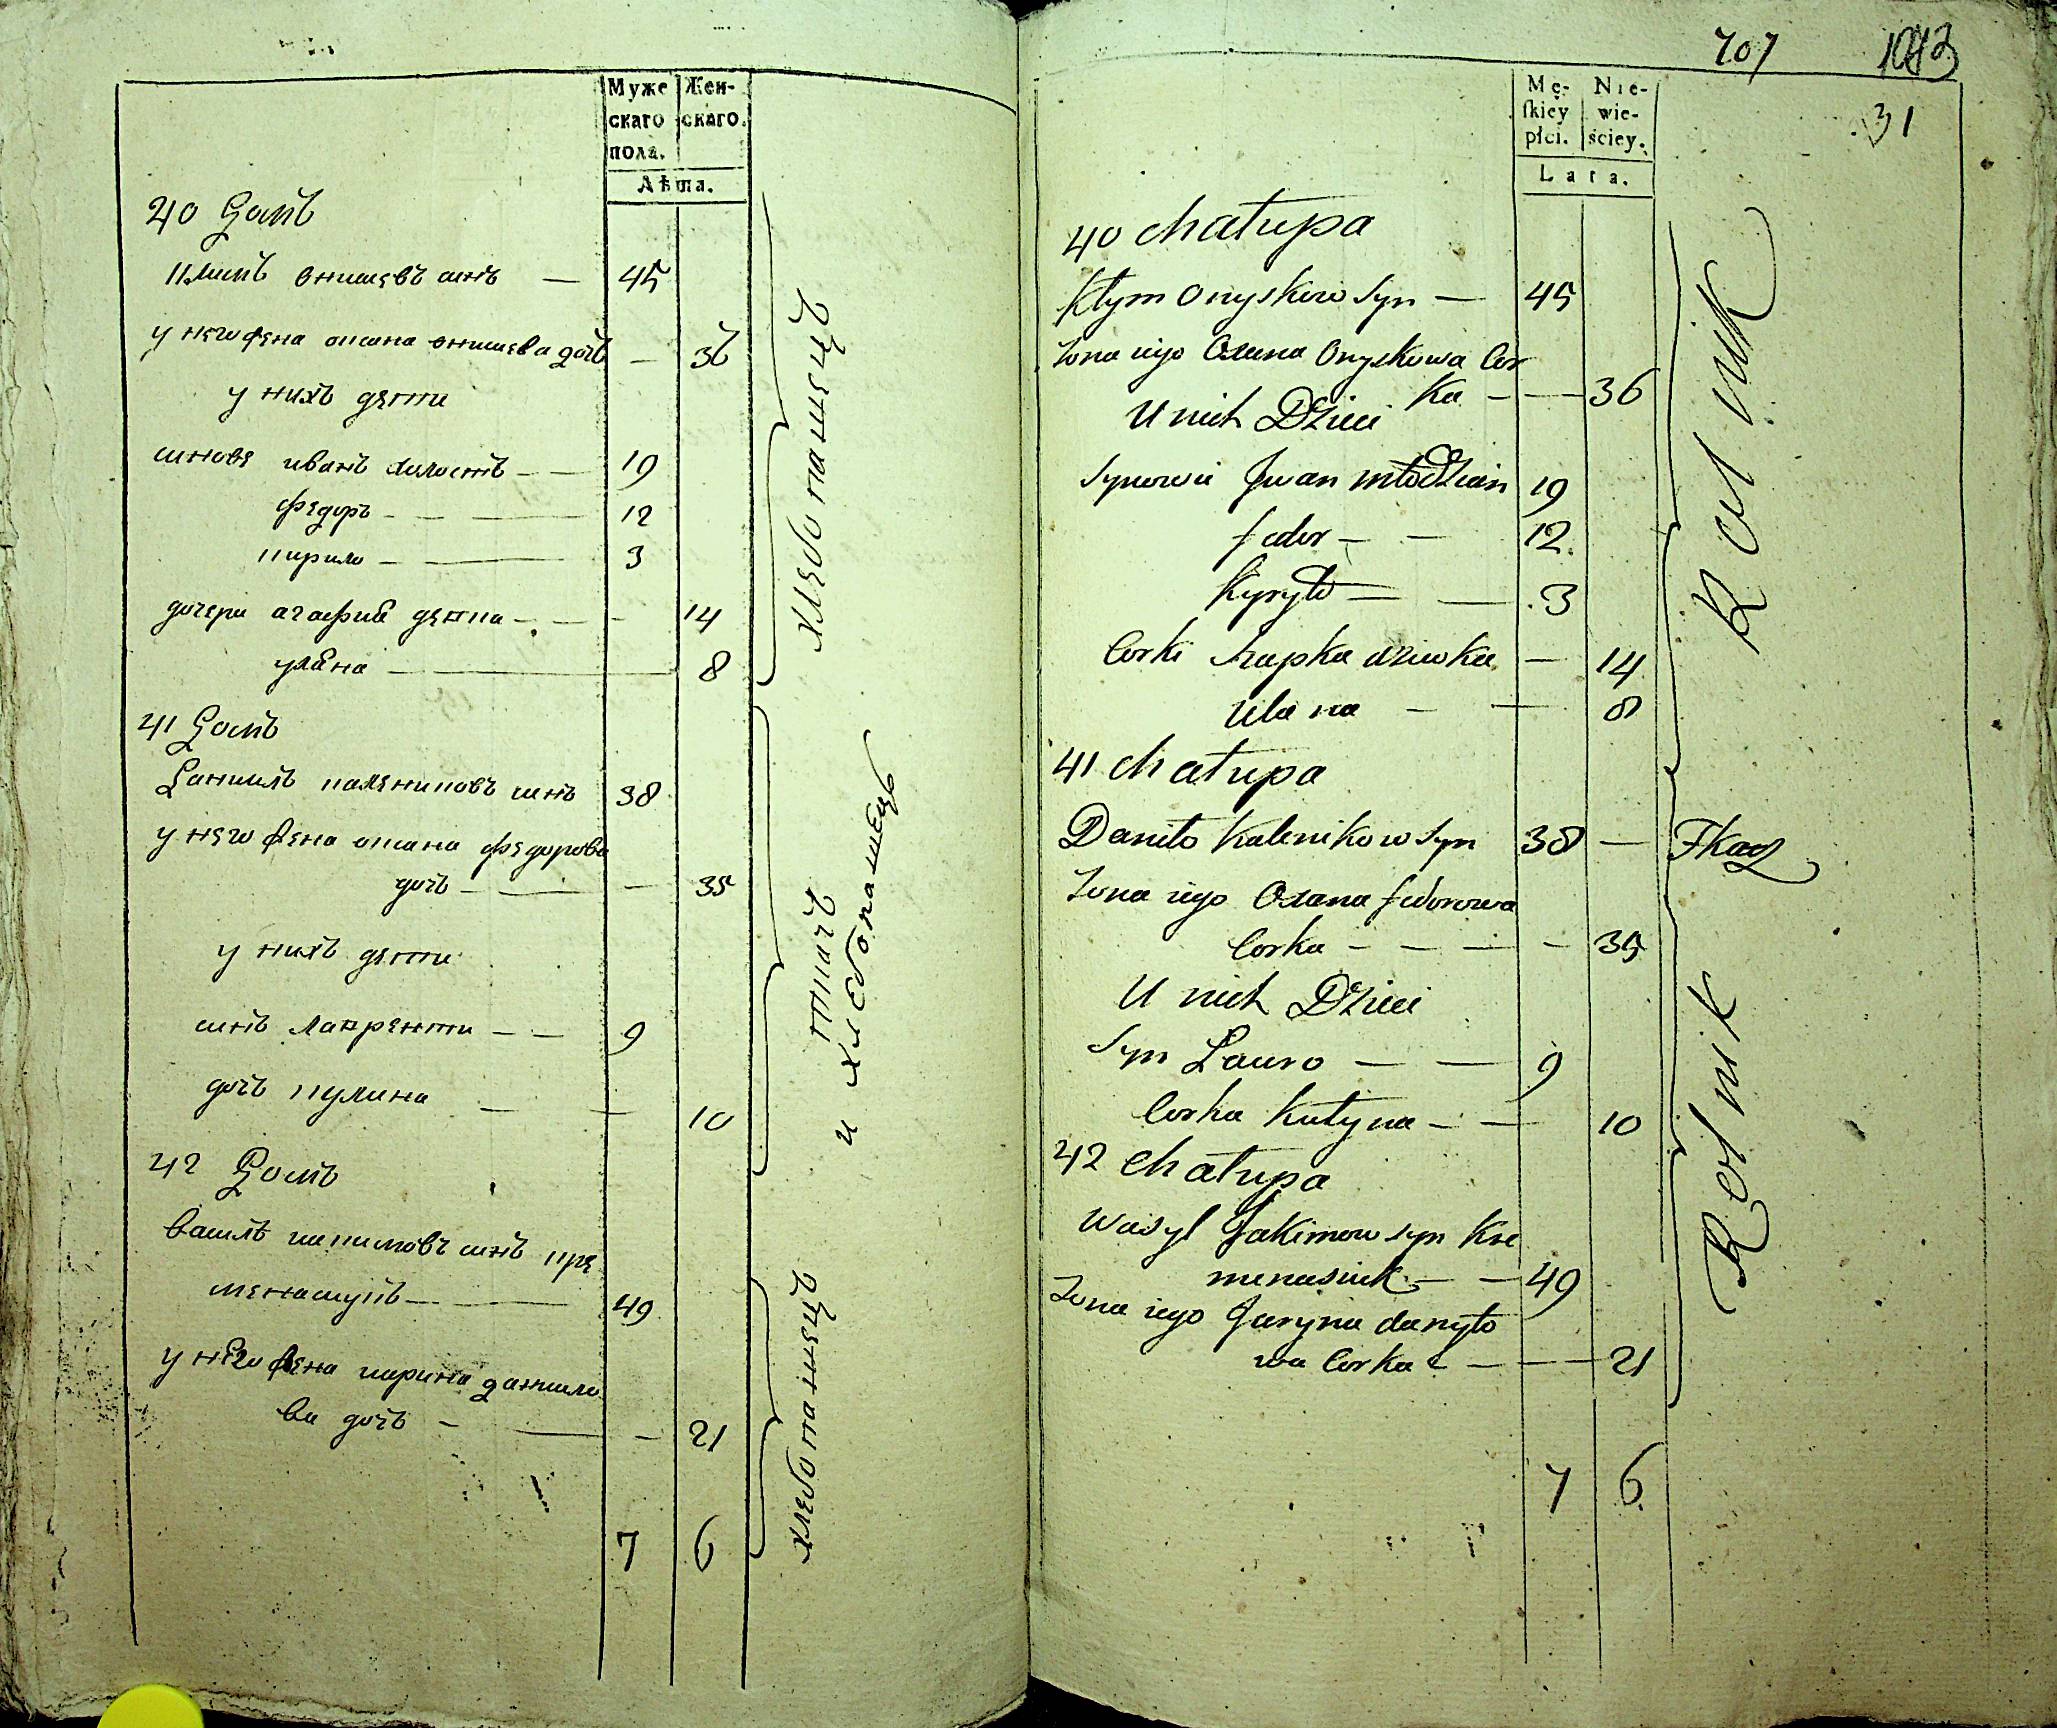 Муже
скаго
пола.
Жен-
скаго.
Лѣта.
40 Домъ
Климъ онисковъ синъ — 45
у него жена оксана онискова дочь — 36
у нихъ дети
синове иванъ холостъ — 19
федоръ — 12
кирило — 3
дочери агафиѣ девка — 14
улѣна — 8
хлебопашецъ
41 Домъ
Данилъ калениковъ синъ 38
у него жена оксана федорова
дочь — 35
у нихъ дети
синъ лаврентии — 9
дочь кулина — 10
ткачъ
и хлебопашецъ
42 Домъ
василь якимовъ синъ кре
менасюкъ — 49
у него жена ярина данило
ва дочь — 21
хлебопашецъ
7 6
707 1013
31
Mę-
ſkiey
płci.
Nie-
wie-
ściey.
Lata.
40 chałupa
Kłym Onyskow Syn — 45
Zona iego Oxana Onyskowa Cor
ka — 36
U nich Dzieci
Synowie Jwan młodzian 19
fedor — 12.
Kyryło — 3
Corki Hapka dziewka — 14
Ulana — 8
Rolnik
41 chałupa
Daniło Kalenikow Syn 38 —
Tkacz
Zona iego Oxana fedorowa
Corka — 35
U nich Dzieci
Syn Lauro — 9
Corka Kulyna — 10
Rolnik
42 chałupa
Wasyl Jakimow syn Kre
menasiuk — 49
Zona iego Jaryna danyło
wa Corka — 21
7 6.